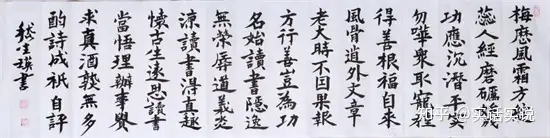 梅歷風霜方挺
蕊人經磨礪或
功應沉潛平交
勿嘩衆取寵
得善根福自來
風骨道外文章
老大時不因果報
方行善豈為功
名始讀書隱逸
無榮辱道義炎
涼讀書得真趣
懷古生遠思讀書
當悟理辦事貴
求真酒無多
酌詩成祇自評
生琪書
知乎 @实话实说